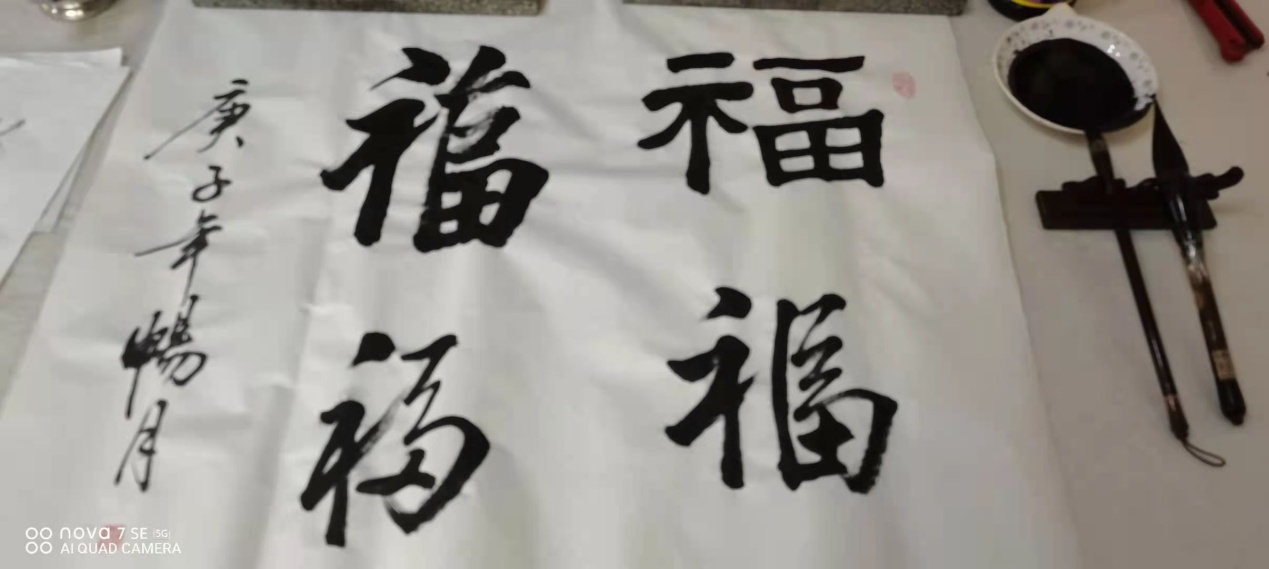 福福
福福
庚子年暢月
nova 7 SE 5G
AI QUAD CAMERA